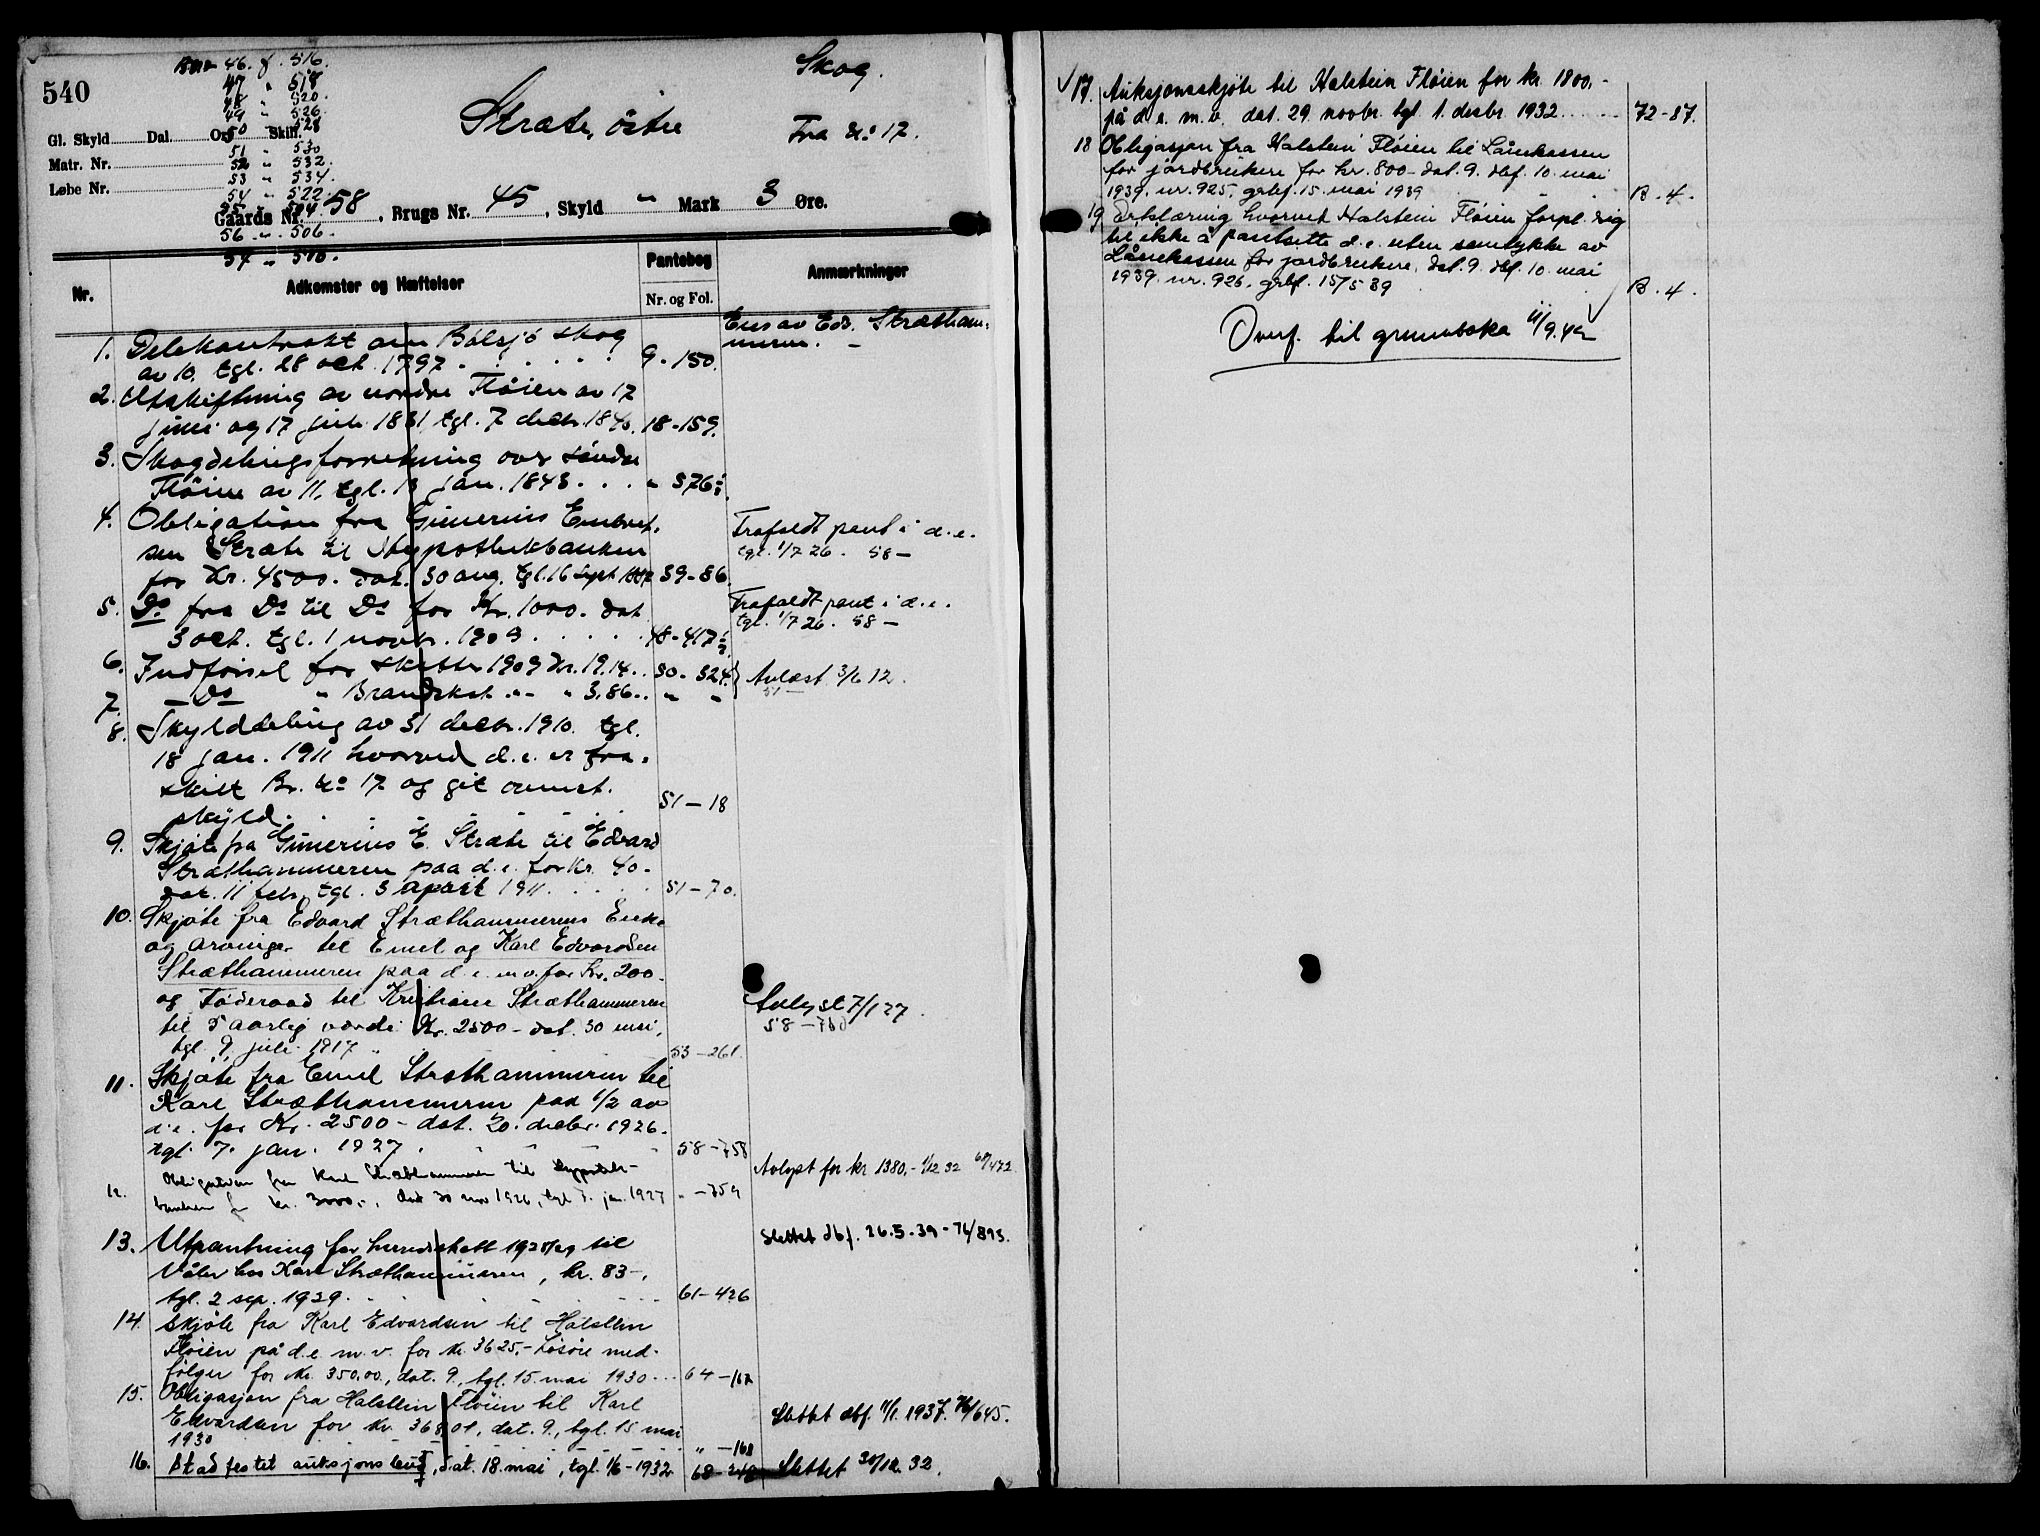 540
Brno 46. f. 516.
47 " 518
48 " 520.
49 " 526
50 " 528
51 " 530
52 " 532.
53 " 534.
54 " 522
56 " 506.
57 " 510.
Gl. Skyld Dal. Ort Skill.
Matr. Nr.
Løbe Nr.
Stræte, östre
Skog.
Fra No 17.
Gaards Nr. 58, Brugs Nr. 45, Skyld " Mark 3 Øre.
Nr.
Adkomster og Hæftelser
Pantebog
Nr. og Fol.
Anmærkninger
Eies av Edv. Strætham-
meren. –
1. Delekontrakt om Bölsjö skog
av 10. tgl. 28 oct. 1797 . . . . . 9 - 150.
2. Utskiftning av nordre Flöien av 17
juni og 17 juli 1831 tgl. 7 decbr. 1840. 18 - 159.
3. Skogdelingsforretning over söndre
Flöien av 11. tgl. 13 jan. 1843 . . . " 576
4. Obligation fra Gunerius Embret-
sen Stræte til Hypothekbanken
for Kr. 4500. dat. 30 aug. tgl. 16 sept 59 - 86.
Frafaldt pant i d.e.
tgl. 1/7 26. 58 –
5. Do fra Do til Do for Kr. 1000. dat
3 oct. tgl. 1 novbr. 1909 . . . . . 48 - 417
Frafaldt pant i d.e.
tgl. 1/7 26. 58 –
6. Indförsel for skatter 1909 Kr. 19.14. . 50 - 524.
7. – Do " Brandskat " – " 3,86 . . " – "
Avlæst 3/6 12.
51 –
8. Skylddeling av 31 decbr. 1910. tgl.
18 jan. 1911 hvorved d.e. er fra-
skilt Br. No 17 og git ovennt.
skyld. . . . . . . 51 – 18
9. Skjöte fra Gunerius E. Stræte til Edvard
Stræthammeren paa d.e. for Kr. 40-
dat. 11 febr. tgl. 3 april 1911. . . . 51 – 70.
10. Skjöte fra Edvard Stræthammerens Enke
og arvinger til Emil og Karl Edvardsen
Stræthammeren paa d.e. m.v. for Kr. 200-
og Föderaad til Kristiane Stræthammeren
til 5 aarlig værdi Kr. 2500 – dat. 30 mai,
tgl. 9. juli 1917 53 – 261.
Avlyst 7/1 27.
58 – 760
11. Skjöte fra Emil Stræthammeren til
Karl Stræthammeren paa 1/2 av
d.e. for Kr. 2500 – dat. 20. decbr. 1926.
tgl. 7. jan. 1927. 58 – 758
12. Obligation fra Karl Stræthammeren til Hypotek-
banken for kr. 3000,-, dat 30 nov 1926, tgl 7. jan. 1927 " – 759
Avlyst for kr 1380,- 1/12 32 69/472.
13. Utpantning for herredsskatt 1928/29 til
Våler hos Karl Stræthammeren, kr. 83-,
tgl. 2 sep. 1929. . . . . 61 – 426
Slettet dbf. 26.5.39 – 76/893.
14. Skjöte fra Karl Edvardsen til Halstein
Flöien på d.e. m.v. for kr. 3625,- Lösöre med-
fölger for kr. 350,00, dat. 9., tgl. 15. mai 1930 . . . 64 – 167
15. Obligasjon fra Halstein Flöien til Karl
Edvardsen for kr. 368,01, dat. 9., tgl. 15 mai
1930 " – 168
Slettet dbf. 11/1. 1937. 76/645.
16. Stadfestet auksjonsbud, dat. 18. mai, tgl. 1/6 – 1932 68 – 242
Slettet 30/12. 32.
17. Auksjonsskjöte til Halstein Flöien for kr. 1800,-
på d.e. m.v. dat. 29 novbr. tgl. 1. desbr. 1932 . . . . . 72 – 87.
18 Obligasjon fra Halstein Flöien til Lånekassen
for jordbrukere for kr. 800 – dat. 9. dbf. 10. mai
1939. nr. 925. grbf. 15. mai 1939 B. 4.
19 Erklæring hvorved Halstein Flöien forpl. sig
til ikke å pantsette d.e. uten samtykke av
Lånekassen for jordbrukere, dat. 9. dbf. 10. mai
1939. nr. 926. grbf. 15/5 39 B. 4.
Overf. til grunnboka 11/9.42